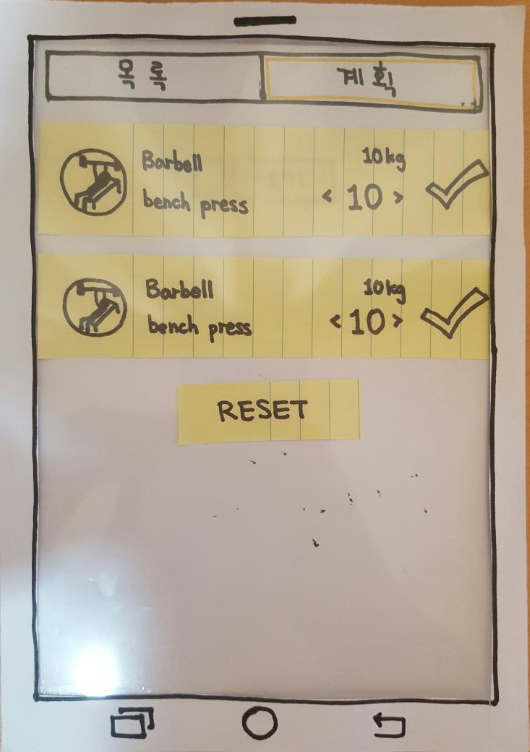 목록
계획
Barbell
bench press
10kg
< 10 >
Barbell
bench press
10kg
< 10 >
RESET